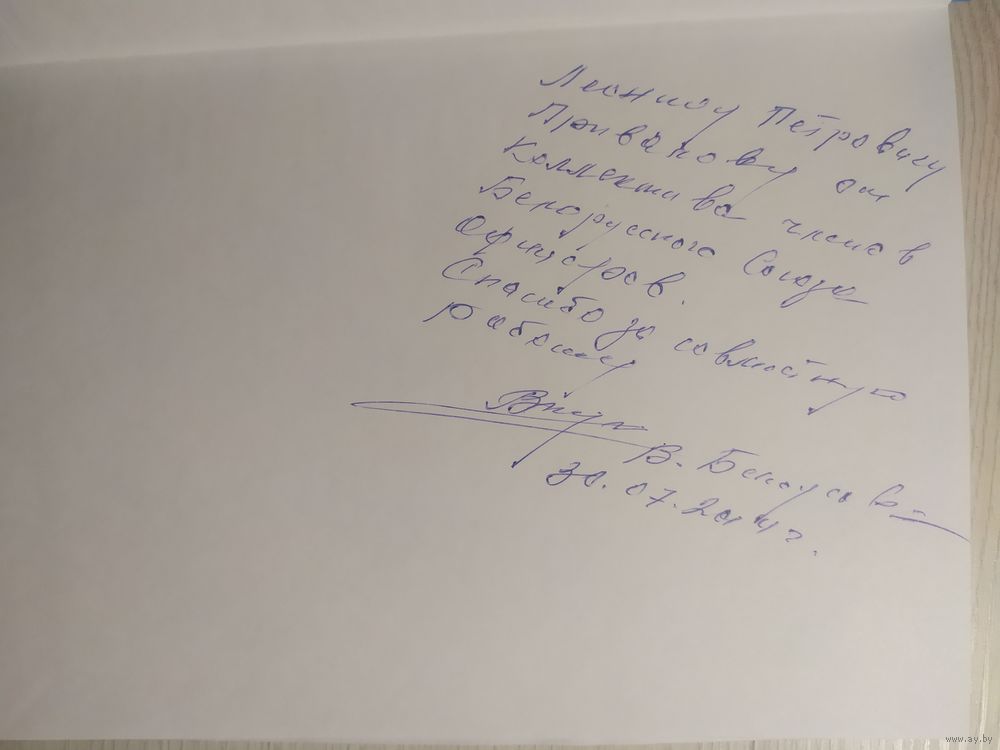 Леониду Петровичу
Привалову от
Коллектива членов
Белорусского Союза
Офицеров.
Спасибо за совместную
работу
В. Белоусов
30.07.2014г.
www.ay.by